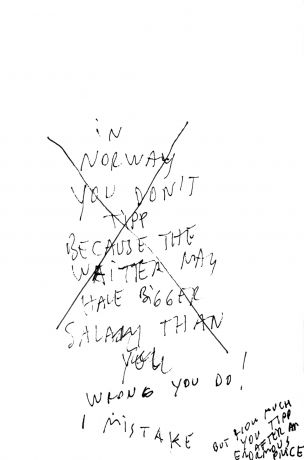 in
NORWAY
YOU DON'T
TIPP
BECAUSE THE
WAITTER MAY
HALE BiGGER
SALARY THAN
YOU
WRONG YOU DO!
I MISTAKE
BUT HOW MUCH
YOU TIPP
AFTER AN
ENORMOUS
PRICE